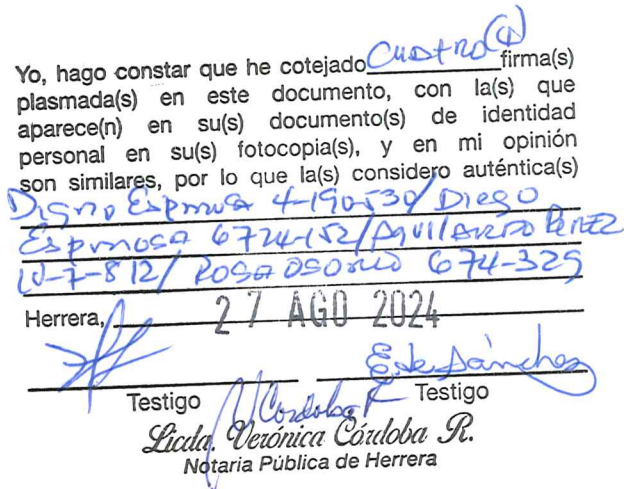 Yo, hago constar que he cotejado Cuatro (4) firma(s)
plasmada(s) en este documento, con la(s) que
aparece(n) en su(s) documento(s) de identidad
personal en su(s) fotocopia(s), y en mi opinión
son similares, por lo que la(s) considero auténtica(s)
Digno Espinosa 4-190-530/ Diego
Espinosa 6724-152/ Aquilardo Perez
/ Rosa Osorio 674-325
Herrera, 27 AGO 2024
Testigo Testigo
Licda. Verónica Córdoba R.
Notaria Pública de Herrera